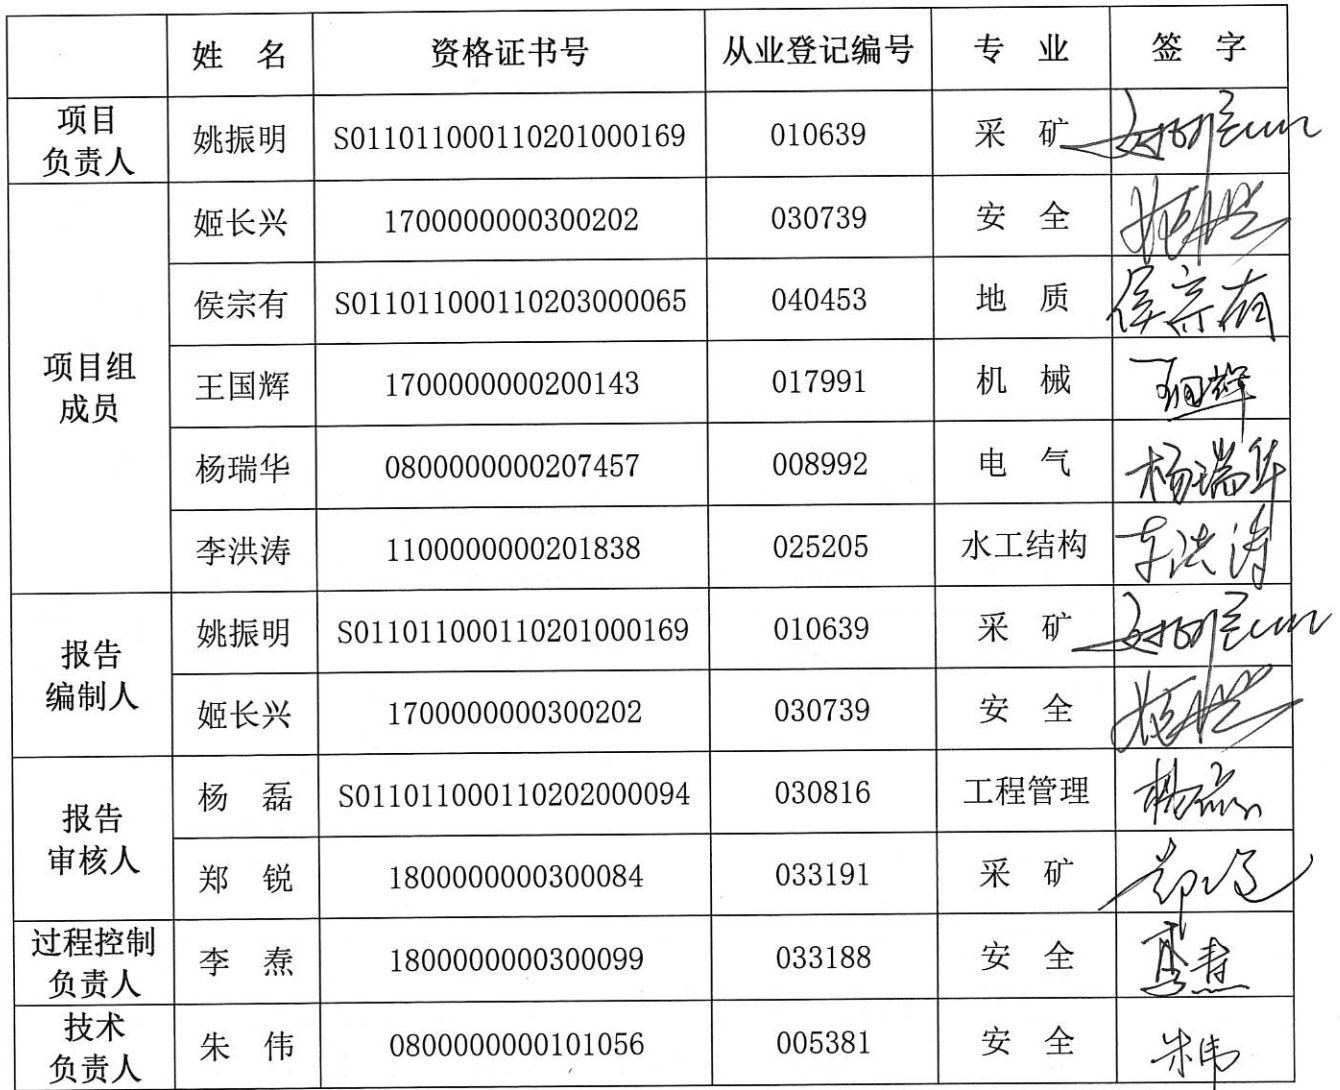 姓 名 资格证书号 从业登记编号 专 业 签 字
项目
负责人 姚振明 S011011000110201000169 010639 采 矿
姬长兴 1700000000300202 030739 安 全
侯宗有 S011011000110203000065 040453 地 质 侯宗有
项目组
成员 王国辉 1700000000200143 017991 机 械 王国辉
杨瑞华 0800000000207457 008992 电 气 杨瑞华
李洪涛 1100000000201838 025205 水工结构 李洪涛
报告
编制人 姚振明 S011011000110201000169 010639 采 矿
姬长兴 1700000000300202 030739 安 全
报告
审核人 杨 磊 S011011000110202000094 030816 工程管理 杨磊
郑 锐 1800000000300084 033191 采 矿
过程控制
负责人 李 焘 1800000000300099 033188 安 全
技术
负责人 朱 伟 0800000000101056 005381 安 全 朱伟